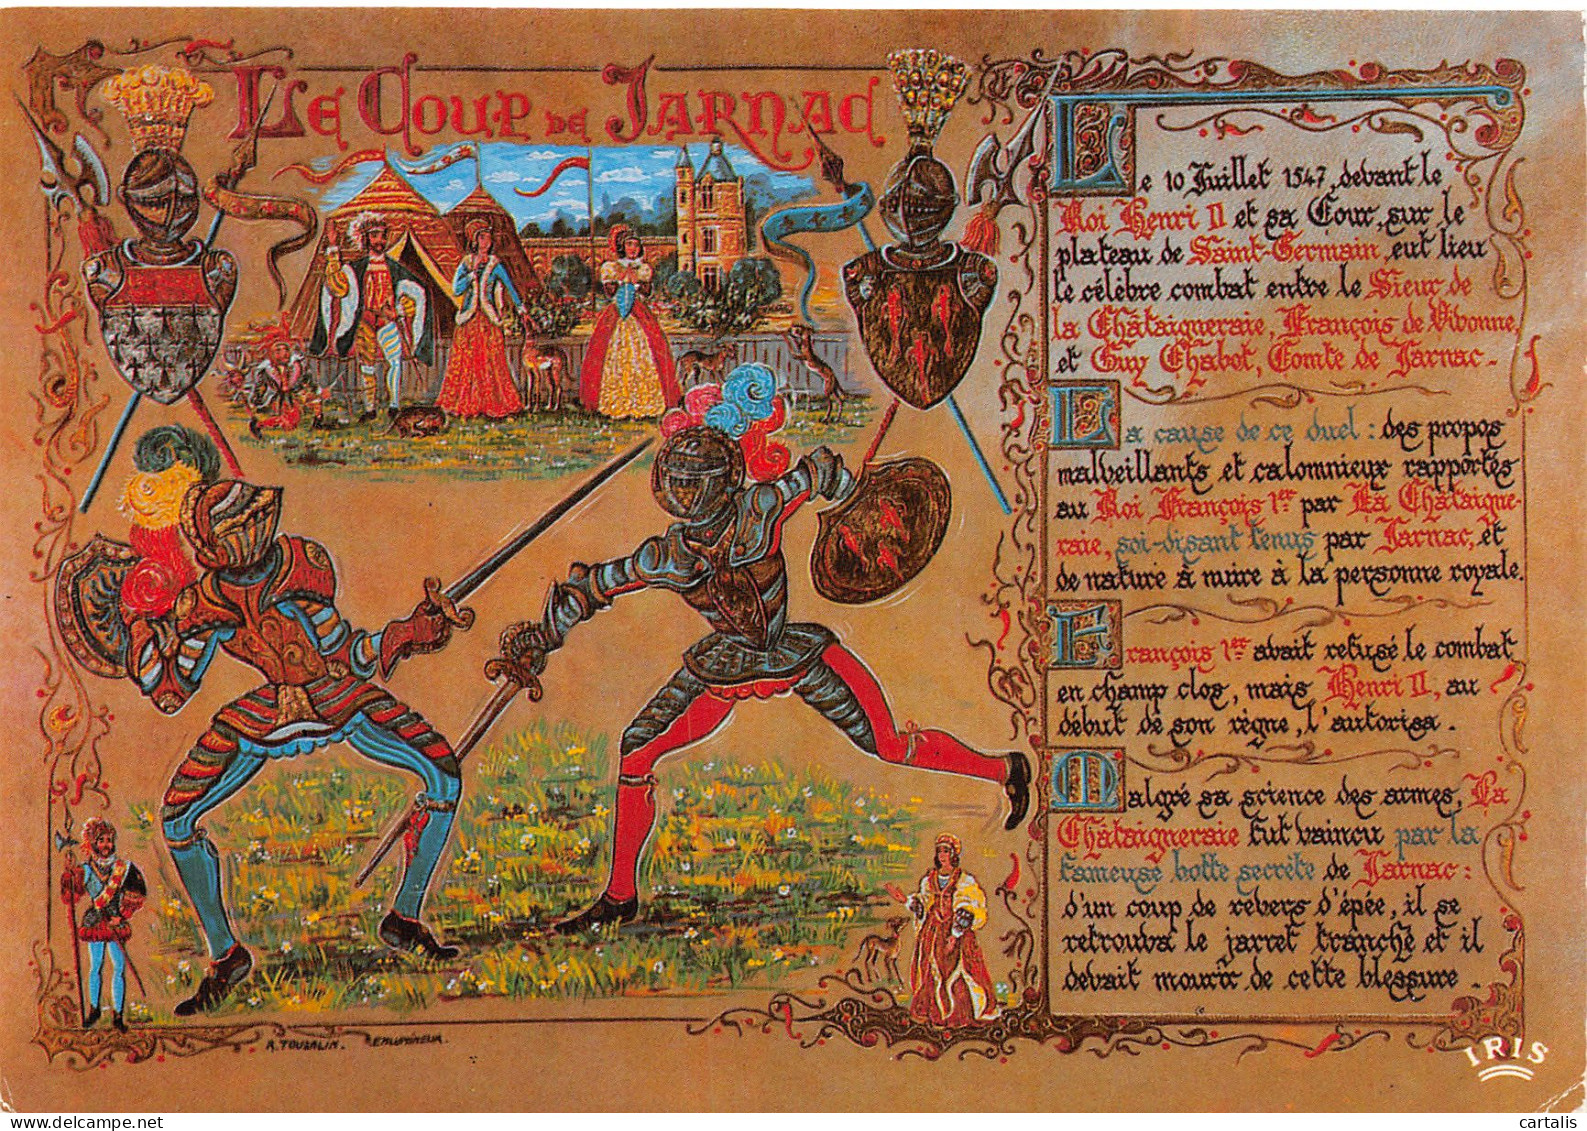 Le Coup de Jarnac
Le 10 Juillet 1547, devant le
Roi Henri II et sa Cour, sur le
plateau de Saint-Germain, eut lieu
le célèbre combat entre le Sieur de
la Châtaigneraie, François de Vivonne,
et Guy Chabot, Comte de Jarnac.
La cause de ce duel : des propos
malveillants et calomnieux rapportés
au Roi François 1er par La Châtaigne-
raie, soi-disant tenus par Jarnac, et
de nature à nuire à la personne royale.
François 1er avait refusé le combat
en champ clos, mais Henri II, au
début de son règne, l'autorisa.
Malgré sa science des armes, La
Châtaigneraie fut vaincu par la
fameuse botte secrète de Jarnac :
d'un coup de revers d'épée, il se
retrouva le jarret tranché et il
devait mourir de cette blessure.
R. TOUZALIN. ENLUMINEUR.
IRIS
cartalis